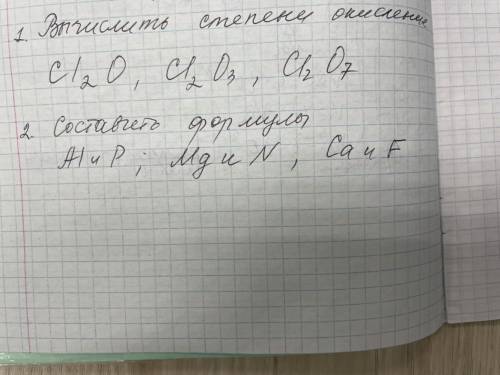 1. Вычислить степени окисление
Cl₂O, Cl₂O₃, Cl₂O₇
2. Составить формулы
Al и P; Mg и N, Ca и F